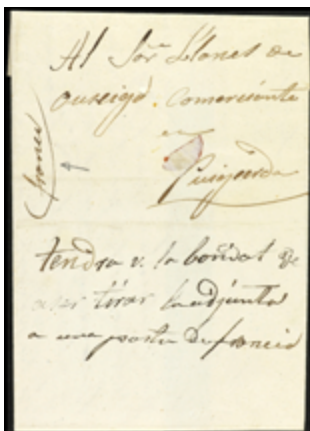 Al Sor. Llanes de
comerciante
en
Puigcerda
tendra v. la bondat de
aser tirar la adjunta
a una posta de francia